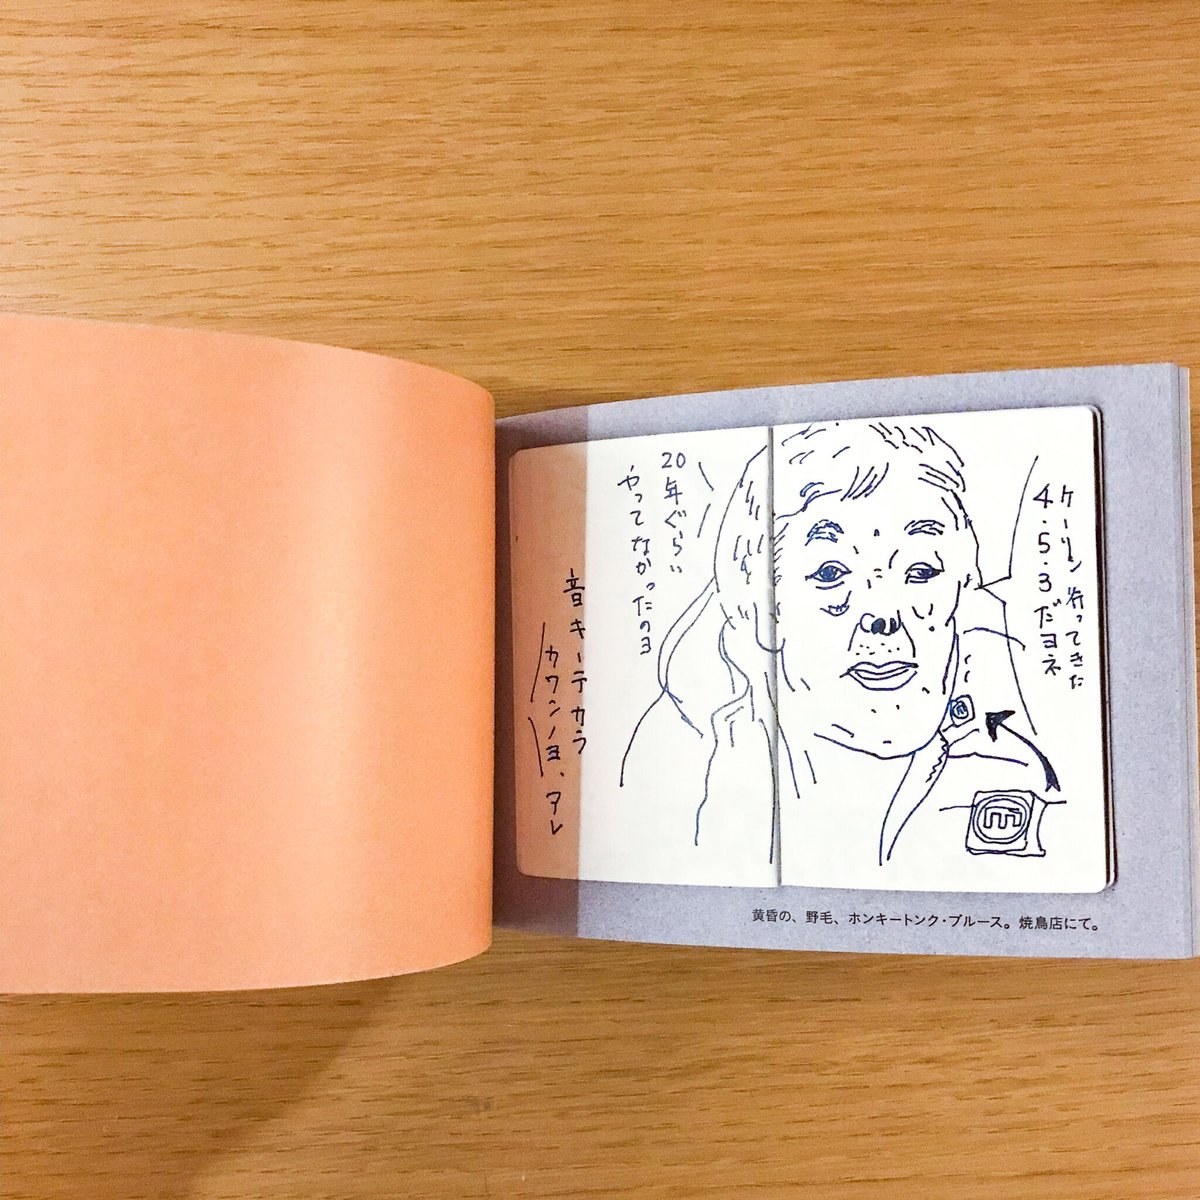 ケーリン行ってきた
4・5・3だヨネ
20年ぐらい
やってなかったのヨ
音キーテカラ
カワンノヨ、アレ
m
黄昏の、野毛、ホンキートンク・ブルース。焼鳥店にて。